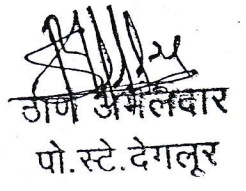 ठाणे अमलदार
पो.स्टे.देगलूर